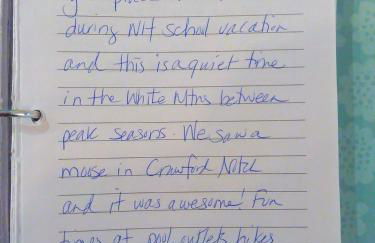 during NH school vacation
and this is a quiet time
in the White Mtns between
peak seasons. We saw a
moose in Crawford Notch
and it was awesome! Fun
times at pool, outlets, hikes